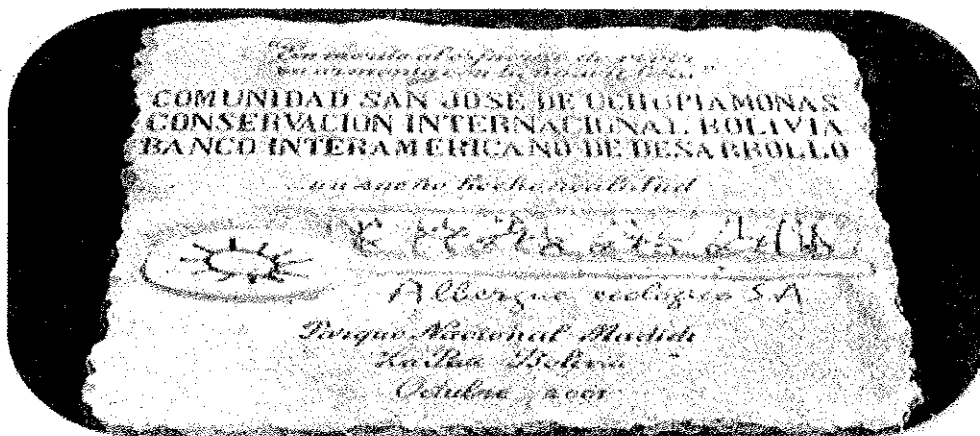 "En merito al esfuerzo de
COMUNIDAD SAN JOSE DE UCHUPIAMONAS
CONSERVACION INTERNACIONAL BOLIVIA
BANCO INTERAMERICANO DE DESARROLLO
un sueño hecho realidad
Albergue ecologico S.A
Parque Nacional Madidi
La Paz Bolivia
Octubre 2001